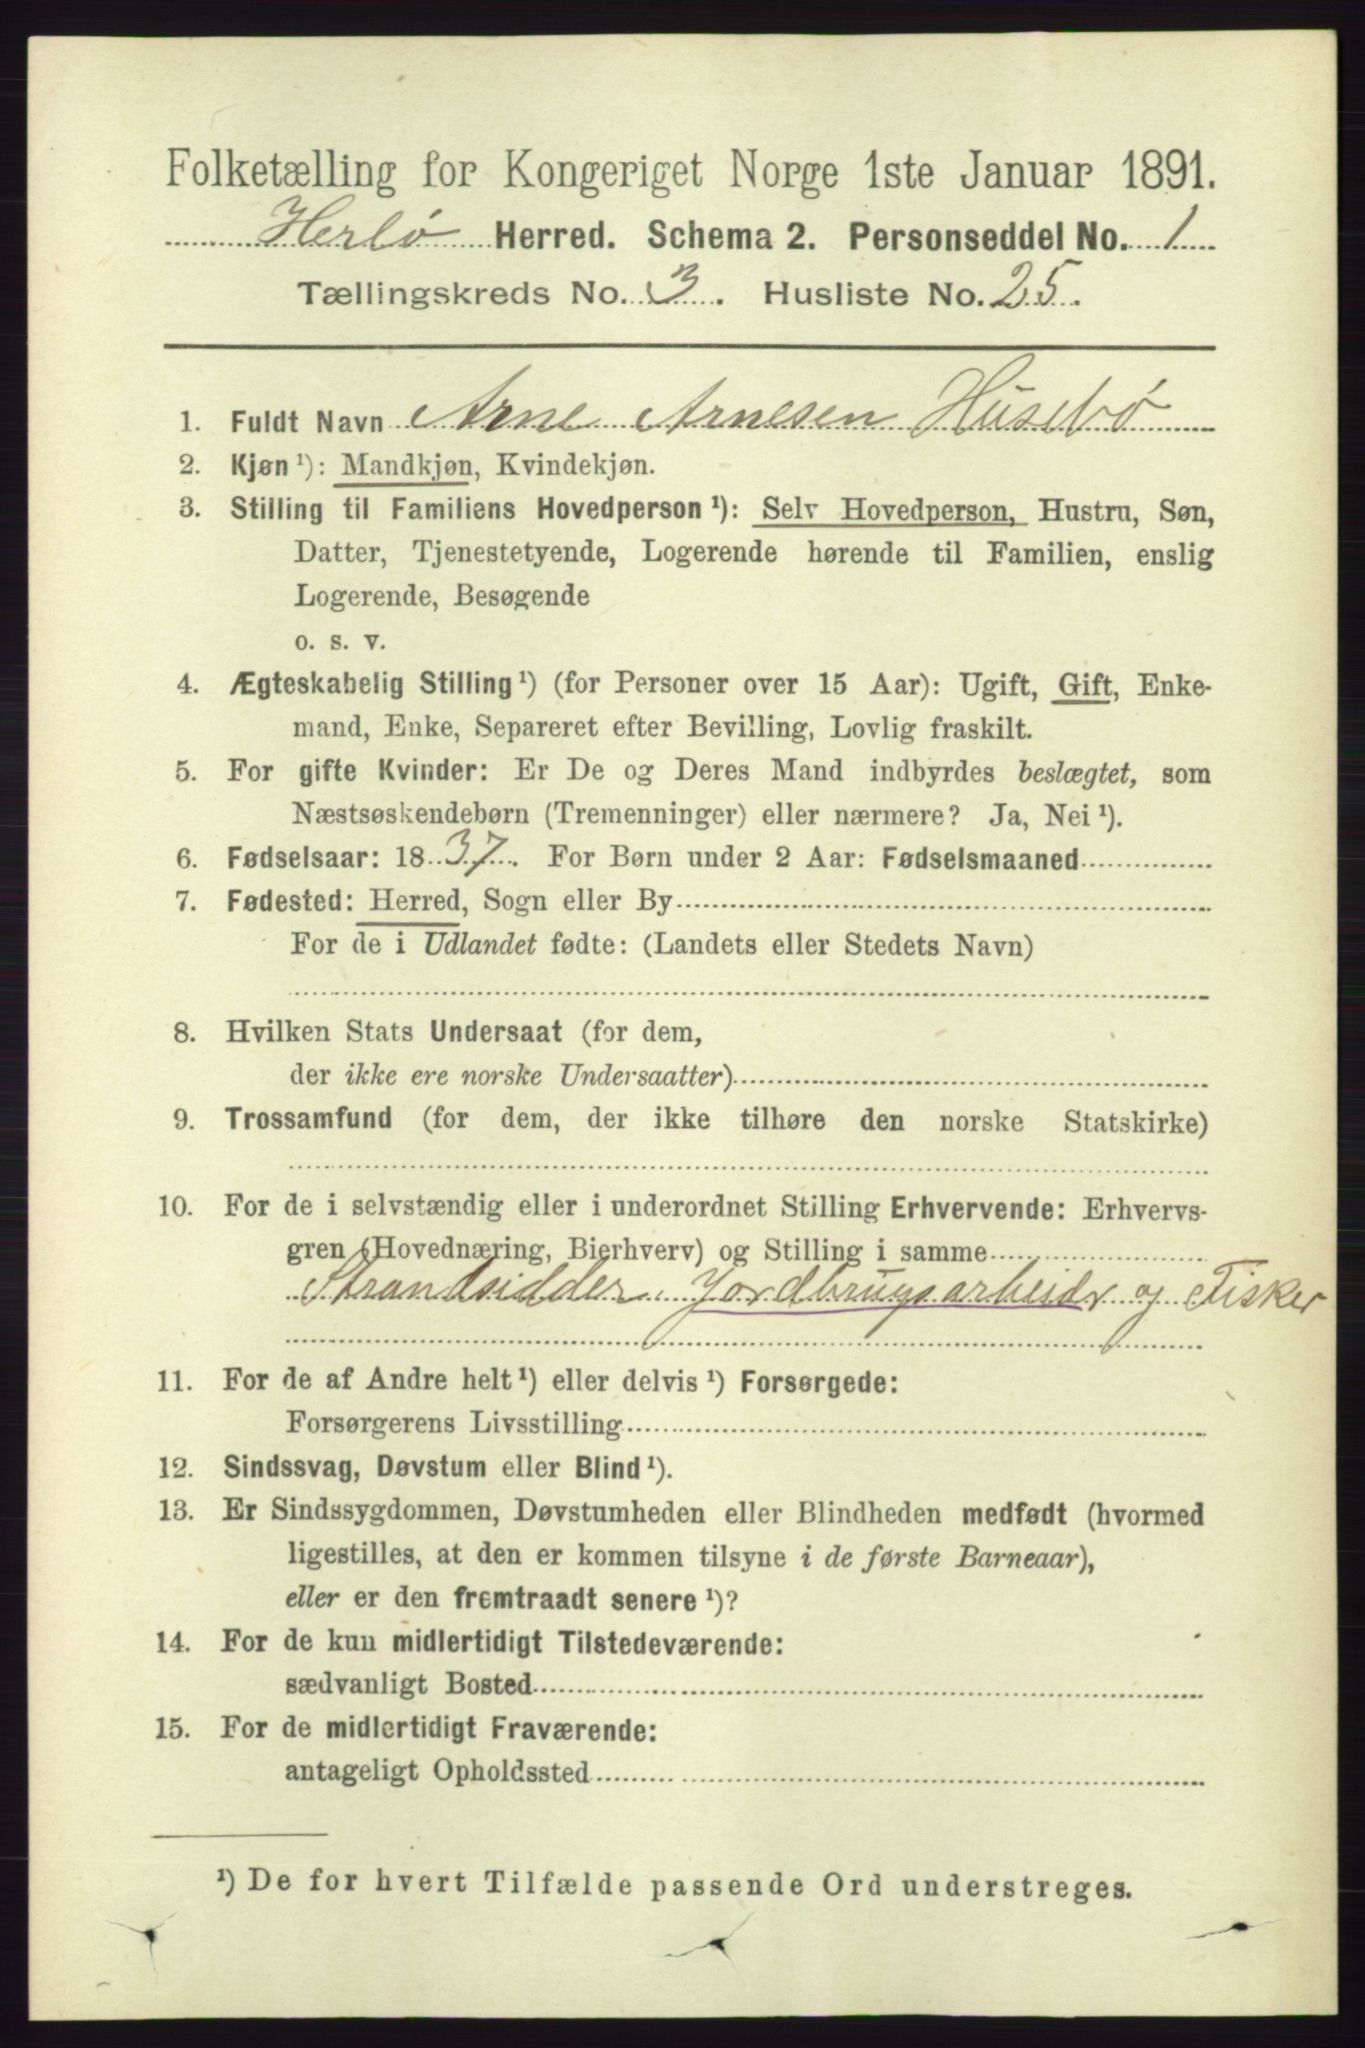 Folketælling for Kongeriget Norge 1ste Januar 1891.
Herlø Herred. Schema 2. Personseddel No. 1
Tællingskreds No. 3. Husliste No. 25.
1. Fuldt Navn Arne Arnesen Husebø
2. Kjøn ¹): Mandkjøn, Kvindekjøn.
3. Stilling til Familiens Hovedperson ¹): Selv Hovedperson, Hustru, Søn,
Datter, Tjenestetyende, Logerende hørende til Familien, enslig
Logerende, Besøgende
o. s. v.
4. Ægteskabelig Stilling ¹) (for Personer over 15 Aar): Ugift, Gift, Enke-
mand, Enke, Separeret efter Bevilling, Lovlig fraskilt.
5. For gifte Kvinder: Er De og Deres Mand indbyrdes beslægtet, som
Næstsøskendebørn (Tremenninger) eller nærmere? Ja, Nei ¹).
6. Fødselsaar: 1837. For Børn under 2 Aar: Fødselsmaaned
7. Fødested: Herred, Sogn eller By
For de i Udlandet fødte: (Landets eller Stedets Navn)
8. Hvilken Stats Undersaat (for dem,
der ikke ere norske Undersaatter)
9. Trossamfund (for dem, der ikke tilhøre den norske Statskirke)
10. For de i selvstændig eller i underordnet Stilling Erhvervende: Erhvervs-
gren (Hovednæring, Bierhverv) og Stilling i samme
Strandsidder, Jordbrugsarbeidr og Fisker
11. For de af Andre helt ¹) eller delvis ¹) Forsørgede:
Forsørgerens Livsstilling
12. Sindssvag, Døvstum eller Blind ¹).
13. Er Sindssygdommen, Døvstumheden eller Blindheden medfødt (hvormed
ligestilles, at den er kommen tilsyne i de første Barneaar),
eller er den fremtraadt senere ¹)?
14. For de kun midlertidigt Tilstedeværende:
sædvanligt Bosted
15. For de midlertidigt Fraværende:
antageligt Opholdssted
¹) De for hvert Tilfælde passende Ord understreges.